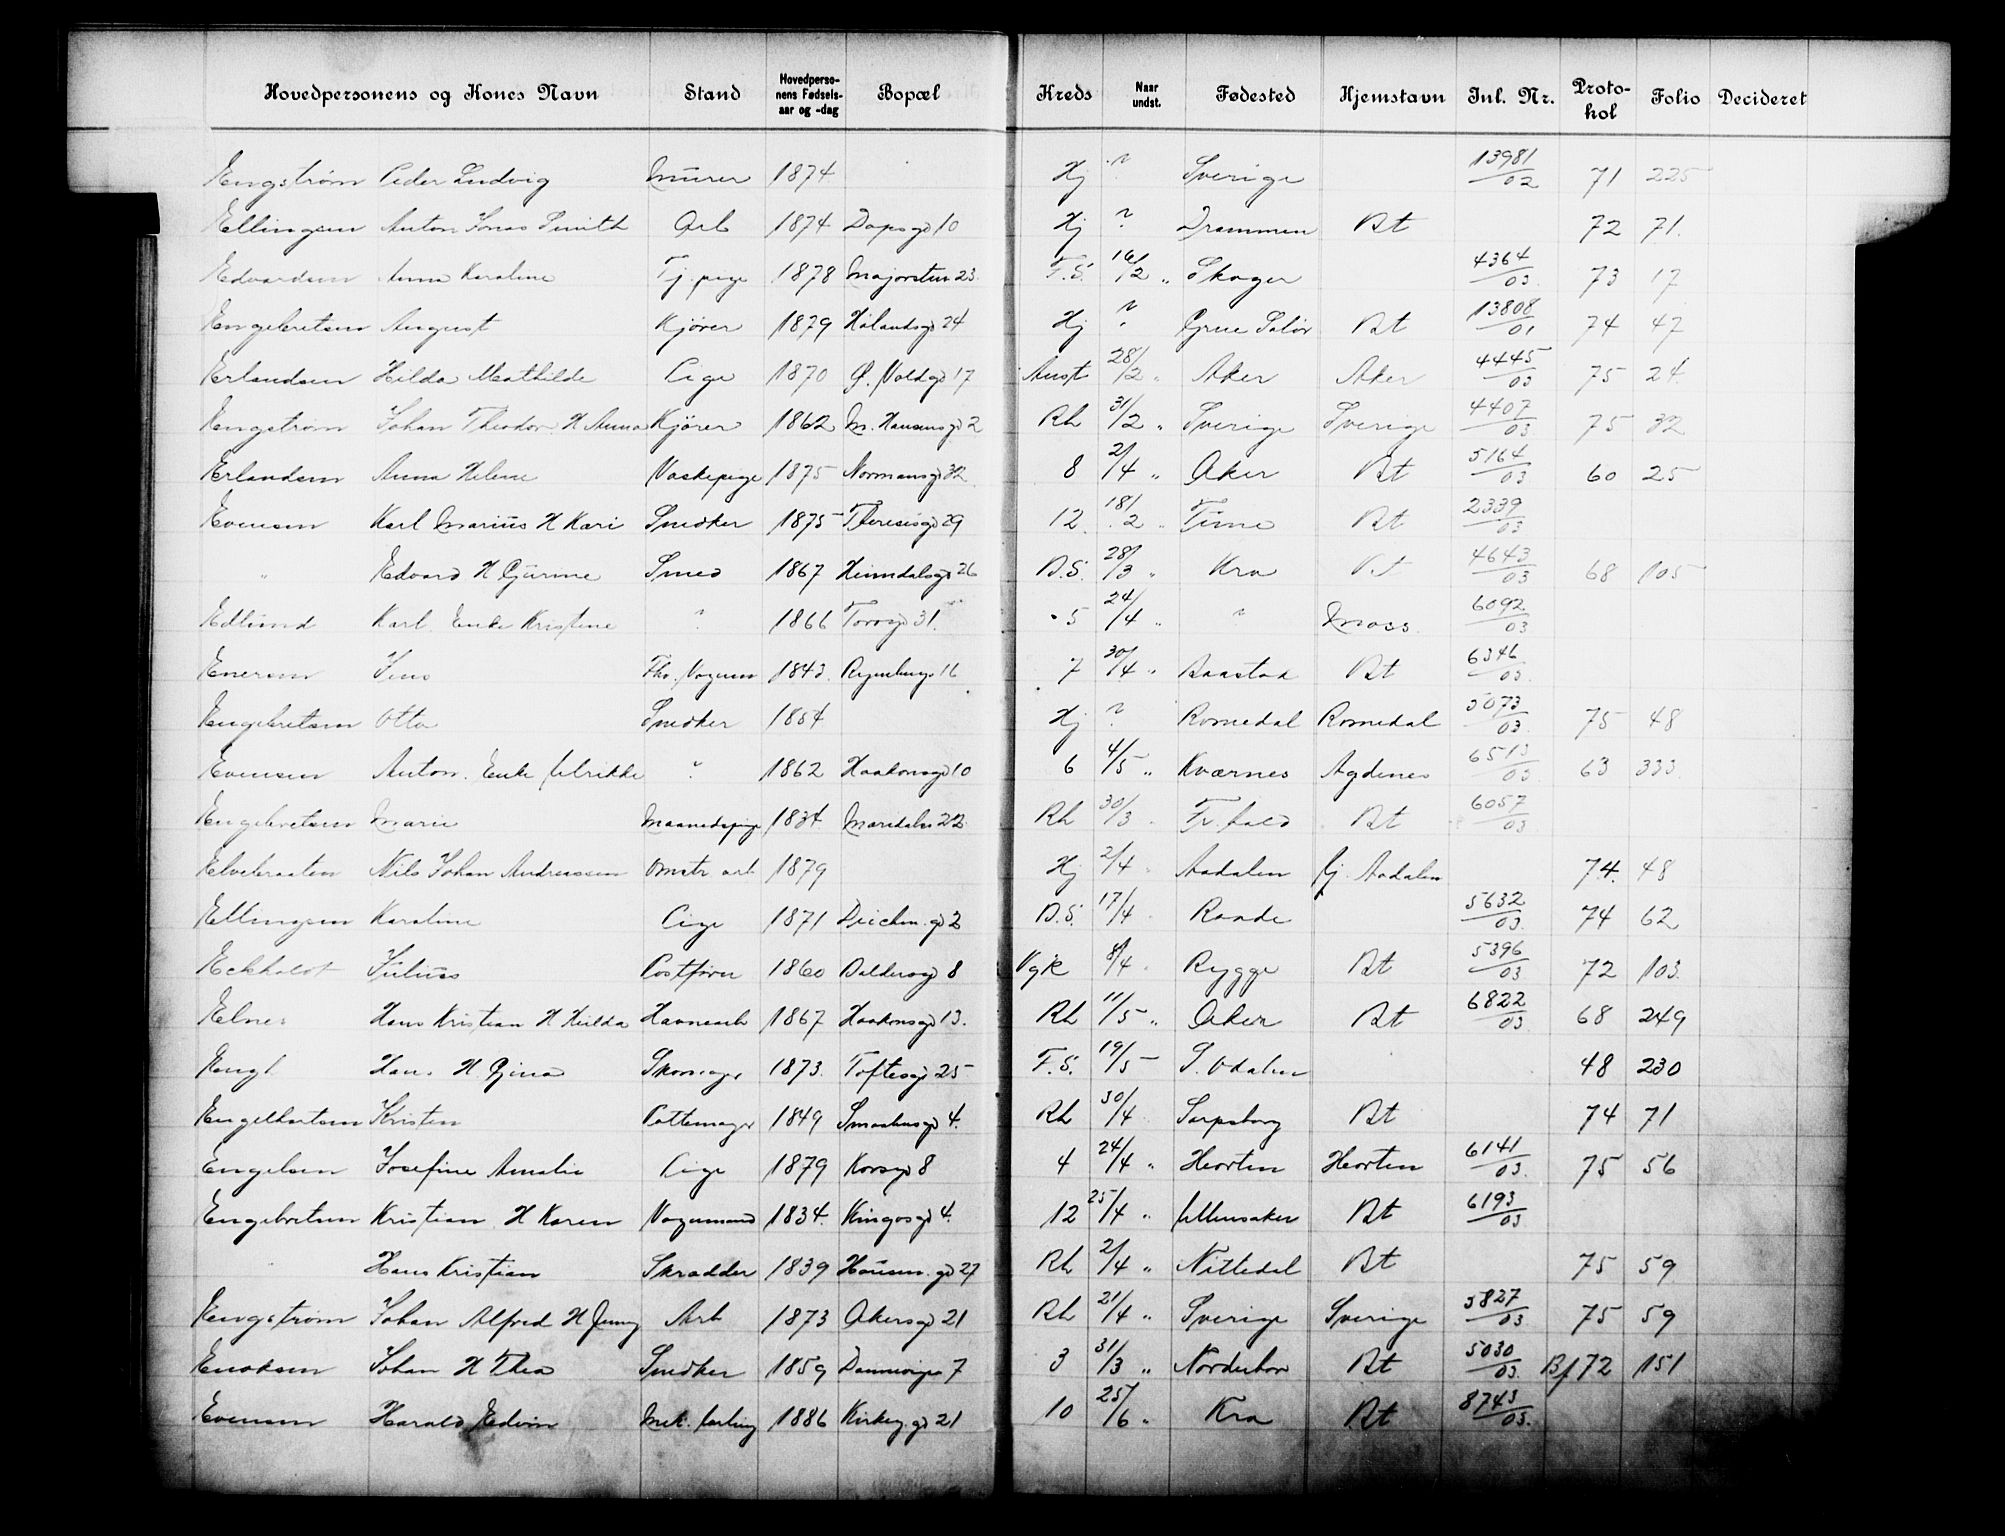 Hovedpersonens og Kones Navn Stand Hovedpersonens Fødselsaar og -dag Bopæl Kreds Naar undst. Fødested Hjemstavn Inl. Nr. Protokol Folio Decideret
Engstrøm Peder Ludvig Murer 1874 Hj ? Sverige 13981/02 71 225
Ellingsen Anton Jonas Smith Arb 1874 Dopsgd 10 Hj ? Drammen Bt 72 71.
Edvardsen Anna Karoline Tj. pige 1878 Majorstun 23 F.S. 16/2 " Skoger 4364/03 73 17
Engebretsen August Kjører 1879 Hølandsgd 24 Hj ? Grue Solør Bt 13808/01 74 47
Erlandsen Hilda Mathilde Pige 1870 Ø. Voldgd 17 Anst 28/2 " Aker Aker 4445/03 75 24
Engstrøm Johan Theodor H Anna Kjører 1862 M. Hansensgd 2 Rh 31/2 " Sverige Sverige 4407/03 75 32
Erlandsen Anna Helene Vaskepige 1875 Normansgd 32 8 2/4 " Aker Bt 5164/03 60 25
Evensen Karl Marius H Kari Snedker 1875 Theresesgd 29 12 18/2 " Time Bt 2339/03
" Edvard H Gjurine Smed 1867 Heimdalsgd 26 D.S. 28/3 " Kra Bt 4643/03 68 105
Edlund Karl Enke Kristine ? 1866 Torvgd 31. 5 24/4 " ? Moss. 6092/03
Enersen Jens Fhv. Vognm 1843. Rynebergs 16 7 30/4 " Baastad Bt 6346/03
Engebretsen Otto Snedker 1854 Hj ? Romedal Romedal 5073/03 75 48
Evensen Anton. Enke Ulrikke " 1862 Haakonsgd 10 6 4/5 " Kværnes Agdenes 6513/03 63 333
Engebretsen Marie Maanedspige 1834 Maridalsv 22 Rh 30/3 Fr.hald Bt 6057/03
Elvebraaten Nils Johan Andreassen Omstr arb 1879 Hj 2/4 " Aadalen Aadalen 74. 48
Ellingsen Karoline Pige 1871 Deichm. gd 2 D.S. 17/4 Raade 5632/03 74 62
Eckholdt Julius Postfører 1860 Baldersgd 8 Vgk 8/4 Rygge Bt 5396/03 72 103
Elnes Hans Kristian H Hulda Havnearb 1867 Haakonsgd 13. Rh 11/5 " Aker Bt 6822/03 68 249
Engh Hans H Gina Skomager 1873. Toftesgd 25 F.S. 19/5 S. Odalen 48 230
Engelbretsen Kristen Pottemager 1849 Smaahusgd 4. Rh 30/4 Sarpsborg Bt 74 71
Engelsen Josefine Amalie Pige 1879 Korsgd 8 4 24/4 " Horten Horten 6141/03 75 56
Engebretsen Kristian H Karen Vognmand 1834. Kingosgd 4. 12 25/4 " Ullensaker Bt 6193/03
Hans Kristian Skrædder 1839 Hausm. gd 27 Rh 2/4 " Nittedal Bt 75 59
Engstrøm Johan Alfred H Jenny Arb 1873 Akersgd 21 Rh 21/4 " Sverige Sverige 5827/03 75 59
Enoksen Johan H Thea Snedker 1859 Dannevigs 7 3 31/3 " Norderhov Bt 5030/03 Bf 72 151
Evensen Harald Edvin Mek. lærling 1886 Kirkeg. gd 21 10 25/6 " Kra Bt 8743/03.